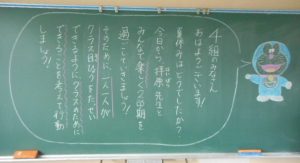 4組のみなさん
おはようございます!
夏休みはどうでしたか?
今日から 拝原先生と
みんなで 楽しく2学期を
過ごしていきましょう!
そのために 一人一人が
クラス目ひょうをたっせい
できるように クラスのために
できることを考えて行動
しましょう!